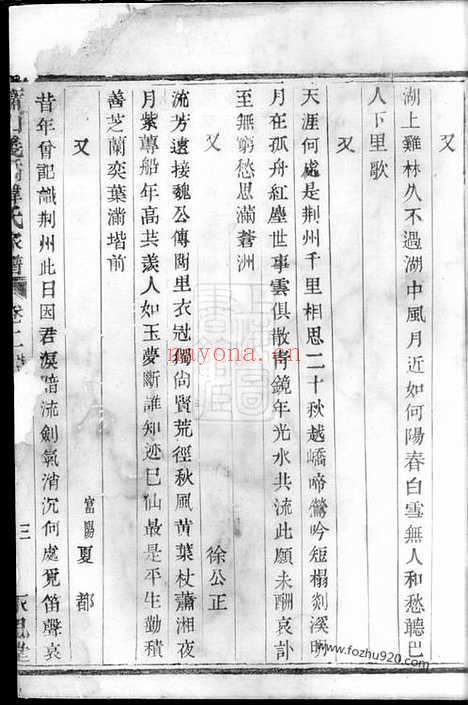 湖上雞林久不過湖中風月近如何陽春白雪無人和愁聽巴
人下里歌
又
天涯何處是荆州千里相思二十秋越嶠啼鶯吟短榻剡溪明
月在孤舟紅塵世事雲俱散青鏡年光水共流此願未酬哀訃
至無窮愁思滿蒼洲
又
徐公正
流芳遠接魏公傳閭里衣冠獨尚賢荒徑秋風黄葉杖瀟湘夜
月紫蓴船年高共羨人如玉夢斷誰知迹已仙最是平生勤積
善芝蘭奕葉滿堦前
又
富陽夏都
昔年曾記識荆州此日因君淚暗流劍氣消沉何處覓笛聲哀
氏家譜
卷二
三
nuyona.com
www.fozhu920.com